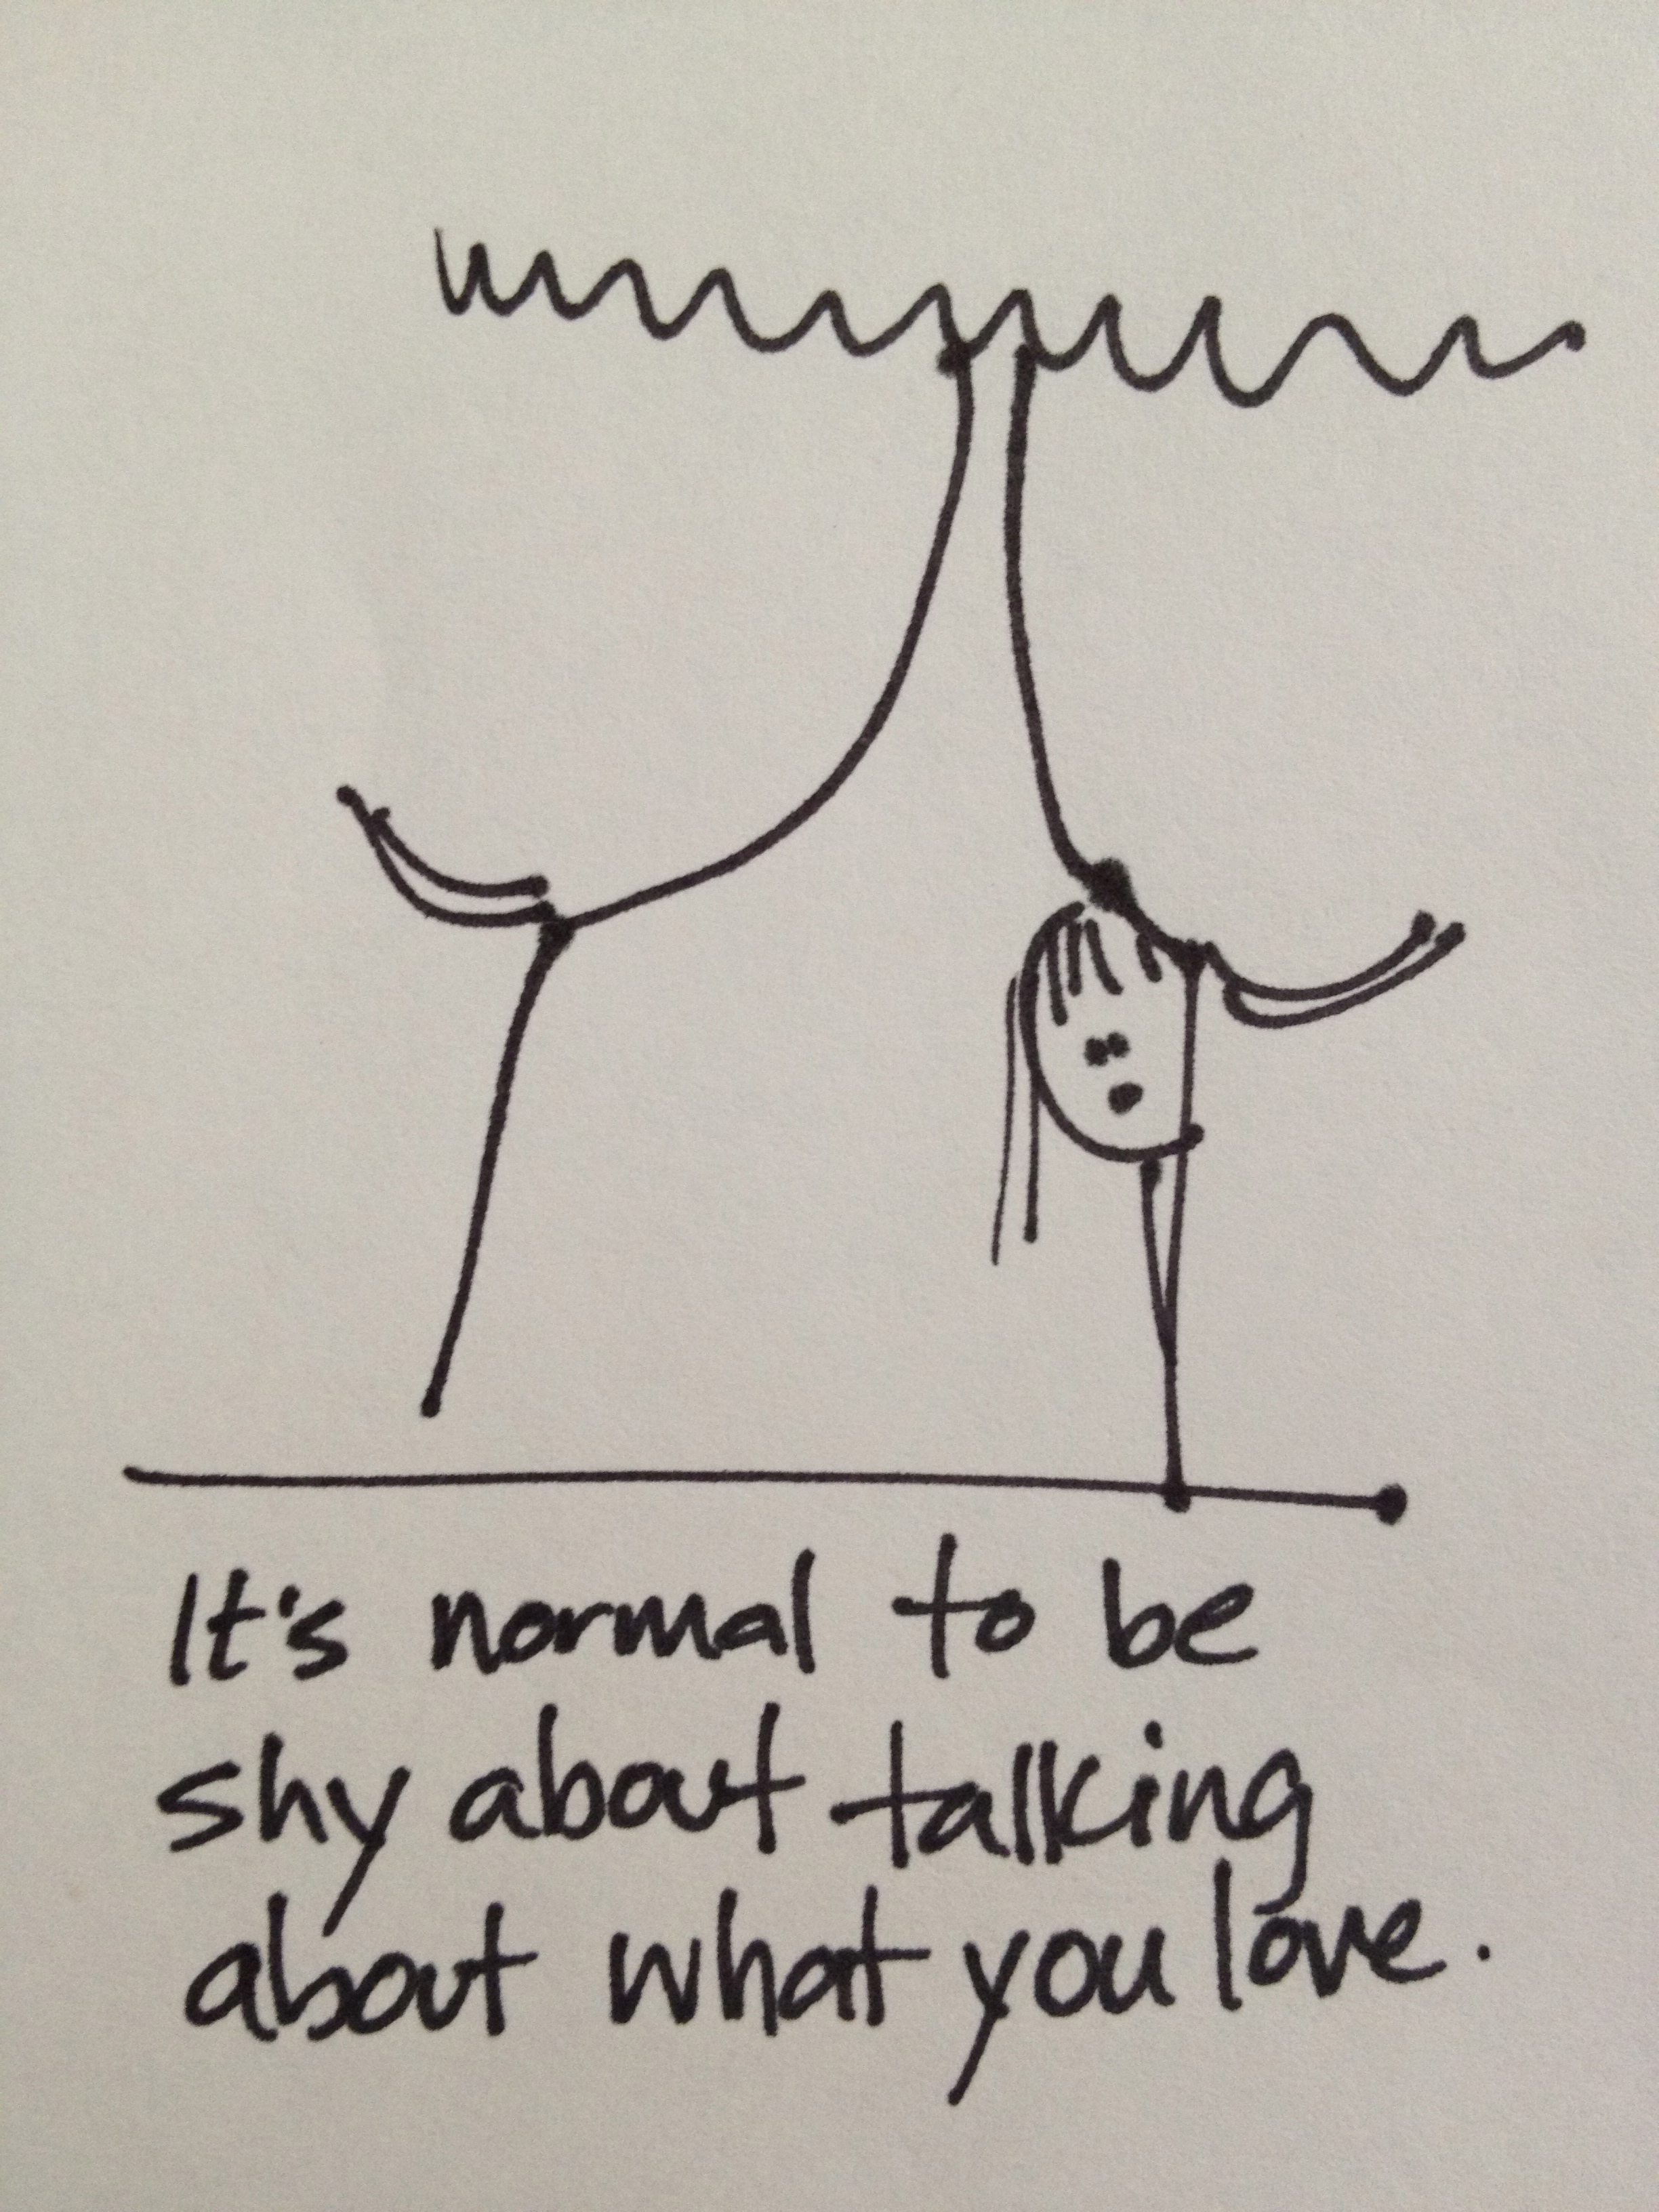 It's normal to be
shy about talking
about what you love.